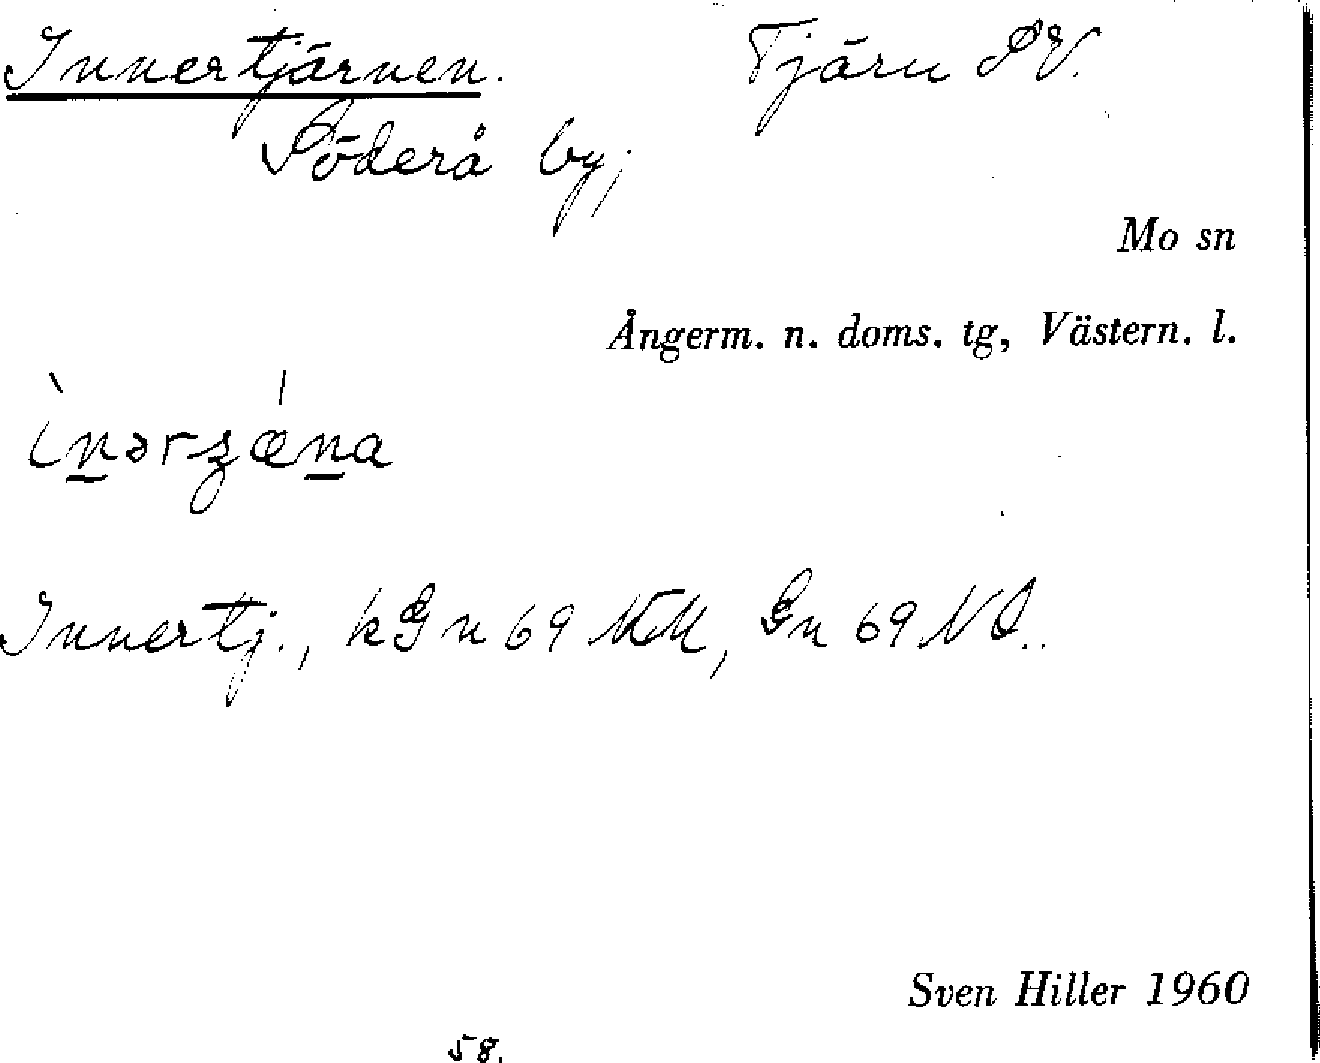 Innertjärnen. Tjärn SV.
Söderå by,
Mo sn
Ångerm. n. doms. tg, Västern. l.
Innertj., k Gn 69 Gn 69
Sven Hiller 1960
58.